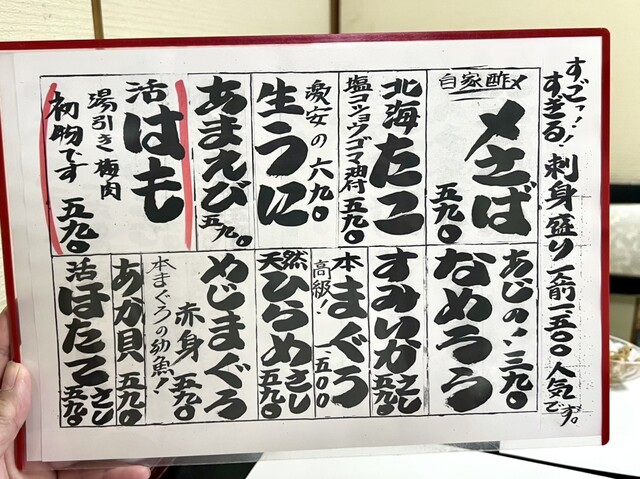 すごっ!!すぎる!刺身盛り一人前一五〇〇人気です。
自家酢〆
〆さば
五九〇
北海たこ
塩コショウゴマ油付五九〇
生うに
激安の六九〇
あまえび
五九〇
活はも
湯引き梅肉
初物です 五九〇
あじの!三九〇
なめろう
すみいかさし
五九〇
本まぐろ
高級!
一五〇〇
天然ひらめさし
五九〇
めじまぐろ
赤身五九〇
本まぐろの幼魚!
あか貝五九〇
活ほたてさし
五九〇